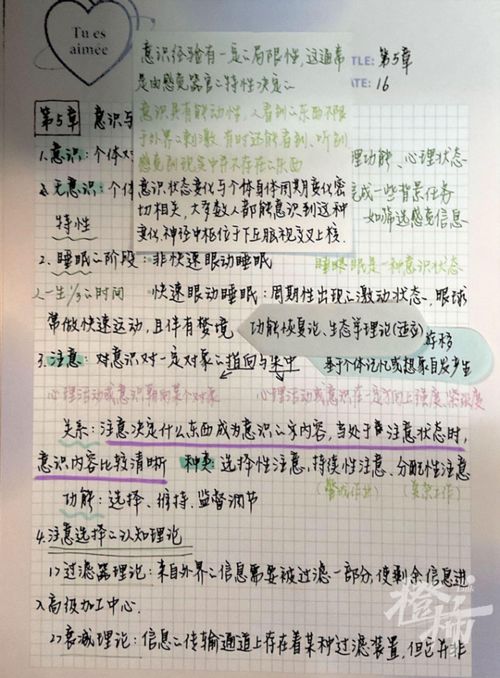 Tu es
aimée
TLE: 第5章
ATE: 16
意识经验有一定局限性,这通常
是由感觉器官特性决定
意识具有能动性,人看到东西不限
于外界刺激,有时还能看到、听到
感觉到现实中不存在东西
意识状态变化与个体身体周期变化密
切相关,大多数人都能意识到这种
变化,神经中枢位于下丘脑视交叉上核.
第5章 意识与
1.意识:个体对 理功能、心理状态
2.无意识:个体 完成一些背景任务
特性 如筛选感觉信息
2.睡眠二阶段:非快速眼动睡眠 睡眠是一种意识状态
一生1/3时间 快速眼动睡眠:周期性出现激动状态,眼球
常做快速运动,且伴有梦境 功能恢复论、生态学理论(进
3.注意:对意识对一定对象指向与集中 基于个体记忆或想象自发产生
心理活动或意识朝向某个对象 心理活动或意识在一定方向上强度、紧张度
关系:注意决定什么东西成为意识内容,当处于注意状态时,
意识内容比较清晰 种类:选择性注意、持续性注意、分配性注意
功能:选择、维持、监督调节
4.注意选择认知理论
1)过滤器理论:来自外界信息需要被过滤一部分,使剩余信息进
入高级加工中心.
2)衰减理论:信息传输通道上存在着某种过滤装置,但它并非
橙柿